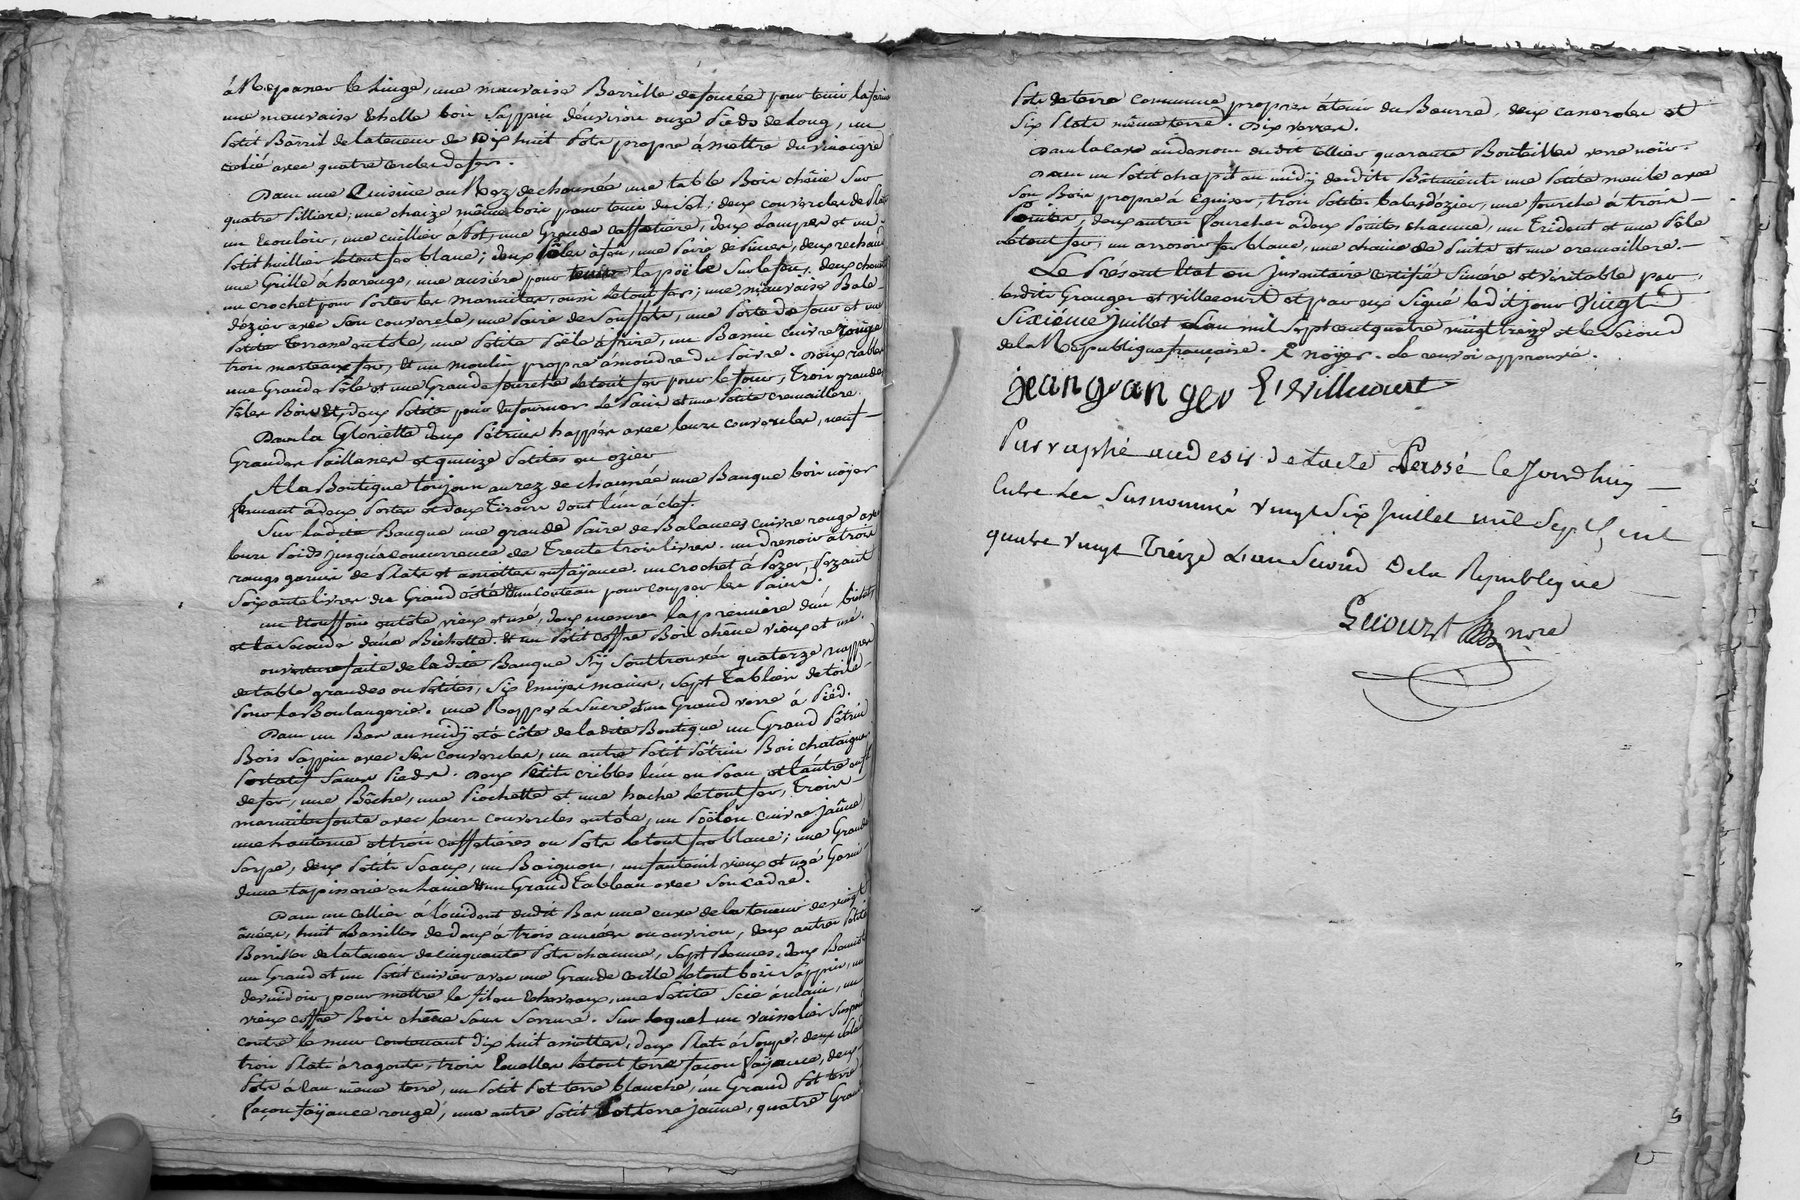 à Repasser le Linge, une mauvaise Barrille defoncée pour tenir la farine
une mauvaise Echelle bois Sappin d'environ onze Pieds de Long, un
Petit Barril de la teneur de Dix huit Pots propre à mettre du vinaigre
relié avec quatre cercles de fer.
Dans une Quisine au Rez de chaussée une table Bois chêne Sur
quatre Pilliers, une chaize même bois pour tenir du sel; deux couvercles de
un Ecouloir, une cuillier à Pot, une Grande Caffetiere, deux Lampes et un
Petit huillier le tout fer blanc; deux Pêles à feu, une Paire de Pinces, deux rechauds
une Grille à harangs, une ansiére pour tenir la pöële Sur le feu, deux chenets
un crochet pour Porter les marmites, aussi le tout fer; une mauvaise Bale
d'ozier avec Son couvercle, une Paire de Soufflets, une Porte de four et une
Petite Terrase en tole, une Petite Pöële à frire, un Bassin cuivre rouge
trois marteaux fer, Et un moulin propre à moudre du Poivre. deux rables
une Grande Pêle et une Grande fourche le tout fer pour le four, Trois grandes
Pêles Bois Et deux Petites pour Enfourner Le Pain et une Petite cremaillere.
Dans la Gloriette deux Pétrins happés avec leurs couvercles, neuf
Grandes Paillasses et quinze Petites en ozier
A la Boutique toujours au rez de chaussée une Banque bois nöyer
fermant à deux Portes et deux Tiroirs dont l'un à clef.
Sur ladite Banque une grande Paire de Balances cuivre rouge avec
leurs Poids jusqu'à concurrence de Trente trois livres. un dressoir à trois
rangs garni de Plats et assiettes en faÿance. un crochet à Pezer, Pezant
Soixante livres du Grand côté & un Couteau pour couper les Pains.
un Etouffoir en tole vieux et usé, deux mesures la premiere d'un bichet
et la Seconde d'une Bichette. & un Petit coffre Bois chêne vieux et usé.
ouverture faite de ladite Banque s'y sont trouvés quatorze nappes
de table grandes ou Petites, Six Essuÿes mains, Sept Tabliers de toile
Pour la Boulangerie. une Rappe à Sucre & un Grand verre à Pied.
Dans un Bas au midÿ et à côté de la dite Boutique un Grand Pétrin
Bois Sappin avec Ses couvercles, un autre Petit Pétrin Bois chataignier
Portatif Sans Pieds. deux Petits cribles l'un en Peau et l'autre en fil
de fer, une Bêche, une Piochette et une hache le tout fer, Trois
marmites fonte avec leurs couvercles en tole, un Pöëlon cuivre jaûne
une lanterne et trois caffetiéres ou Pots le tout fer blanc; une Grande
Serpe, deux Petits Seaux, un Baignon, un fauteuil vieux et usé Garni
d'une tapisserie en Laine & un Grand Tableau avec Son cadre.
Dans un cellier à l'occident dudit Bas une cuve de la teneur de vingt
ânées, huit Barrilles de deux à trois années ou environ, deux autres Petites
Barrilles de la teneur de cinquante Pots chacune, Sept Bennes, deux
un Grand et un Petit cuvier avec une Grande seille le tout bois Sappin, un
devidoir pour mettre le fil en Echevaux, une Petite Scie à main, un
vieux coffre Bois chêne Sans Serrure. Sur lequel un vaisselier Suspendu
contre le mur contenant dix huit assiettes, deux Plats à Soupe, deux
trois Plats à ragouts, trois Ecuelles le tout terre façon faÿance, deux
Pots à l'eau même terre, un Petit Pot terre blanche, un Grand Pot terre
façon faÿance rouge, une autre Petit Pot terre jaûne, quatre Grands
Pots de terre commune propres à tenir du Beurre, deux casseroles et
Six Plats même terre. Dix verres.
Dans la Cave au dessous dudit cellier quarante Bouteilles verre noir.
Dans un Petit chapit au midÿ desdits Bâtiments une Petite meule avec
Son Bois propre à Eguiser, trois Petites bales d'ozier, une fourche à trois
Pointes, deux autres fourches à deux Pointes chacune, un Trident et une Pêle
le tout fer, un arrosoir fer blanc, une chaine de Puits et une cremaillere.
Le Présent Etat ou Inventaire certifié Sincére et véritable par
lesdits Granger et Villecourt et par eux Signé ledit jour Vingt
Sixiéme Juillet L'an mil Sept cent quatre vingt treize et le Second
de la République française. Le renvoi approuvé.
jean granger Villecourt
Parraphé au desir de l'acte Passé Cejourd'huy
Entre Les Susnommés Vingt Six Juillet mil Sept Cent
quatre Vingt Treize L'an Second De la Republique
Lecourt nore